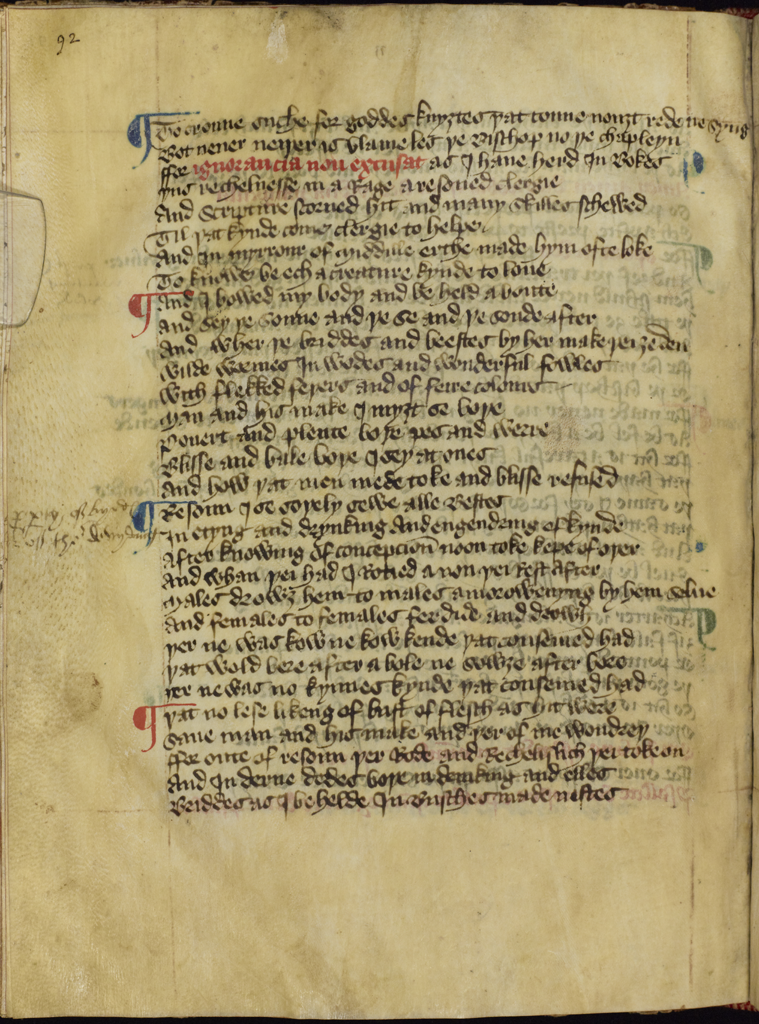 92
To croune suche for goddes knyztes þat conne nouzt rede ne syng
Bot neuer neiþer is blameles þe Bischop no þe chapleyn
ffor ignorancia non excusat as I haue herd In Bokes
þus rechelnesse in a Rage aresoned clergie
And Scripture scorned hit and many skilles schewed
Til þat kynde come clergie to helpe
And In myrrour of middule erthe made hym ofte loke
To knowe be ech a creature kynde to loue
And I bowed my body and be held aboute
And sey þe sonne and þe se and þe sonde after
And wher þe briddes and beestes by her make þei zeden
wilde wormes In wodes and wonderful fowles
with flekked feþers and of feire colours
Man and his make I myzt se boþe
Pouert and plente boþe pes and werre
Blisse and bale boþe I sey at ones
And how þat men mede toke and blisse refused
Resoun I se soþely sewe alle Bestes
In etyng and drynking And engendring of kynde
After knowing of concepcion noon toke kepe of oþer
And whan þei had I Rotied a non þei Rest after
Males drowz hem to males amorowenyng by hem selue
And females to females ferdide and drowh
þer ne was kow ne kow kende þat conseiued had
þat wold bere after a bole ne sowze after bore
þer ne was no kynnes kynde þat conseiued had
þat no lese likeng of lust of flesch as hit were
Saue man and his make and þer of me wondrey
ffor oute of resoun þer Rode and Rechelislich þei toke on
And In derne dedes boþe in drinking and elles
Briddes as I be helde In Busches made nistes